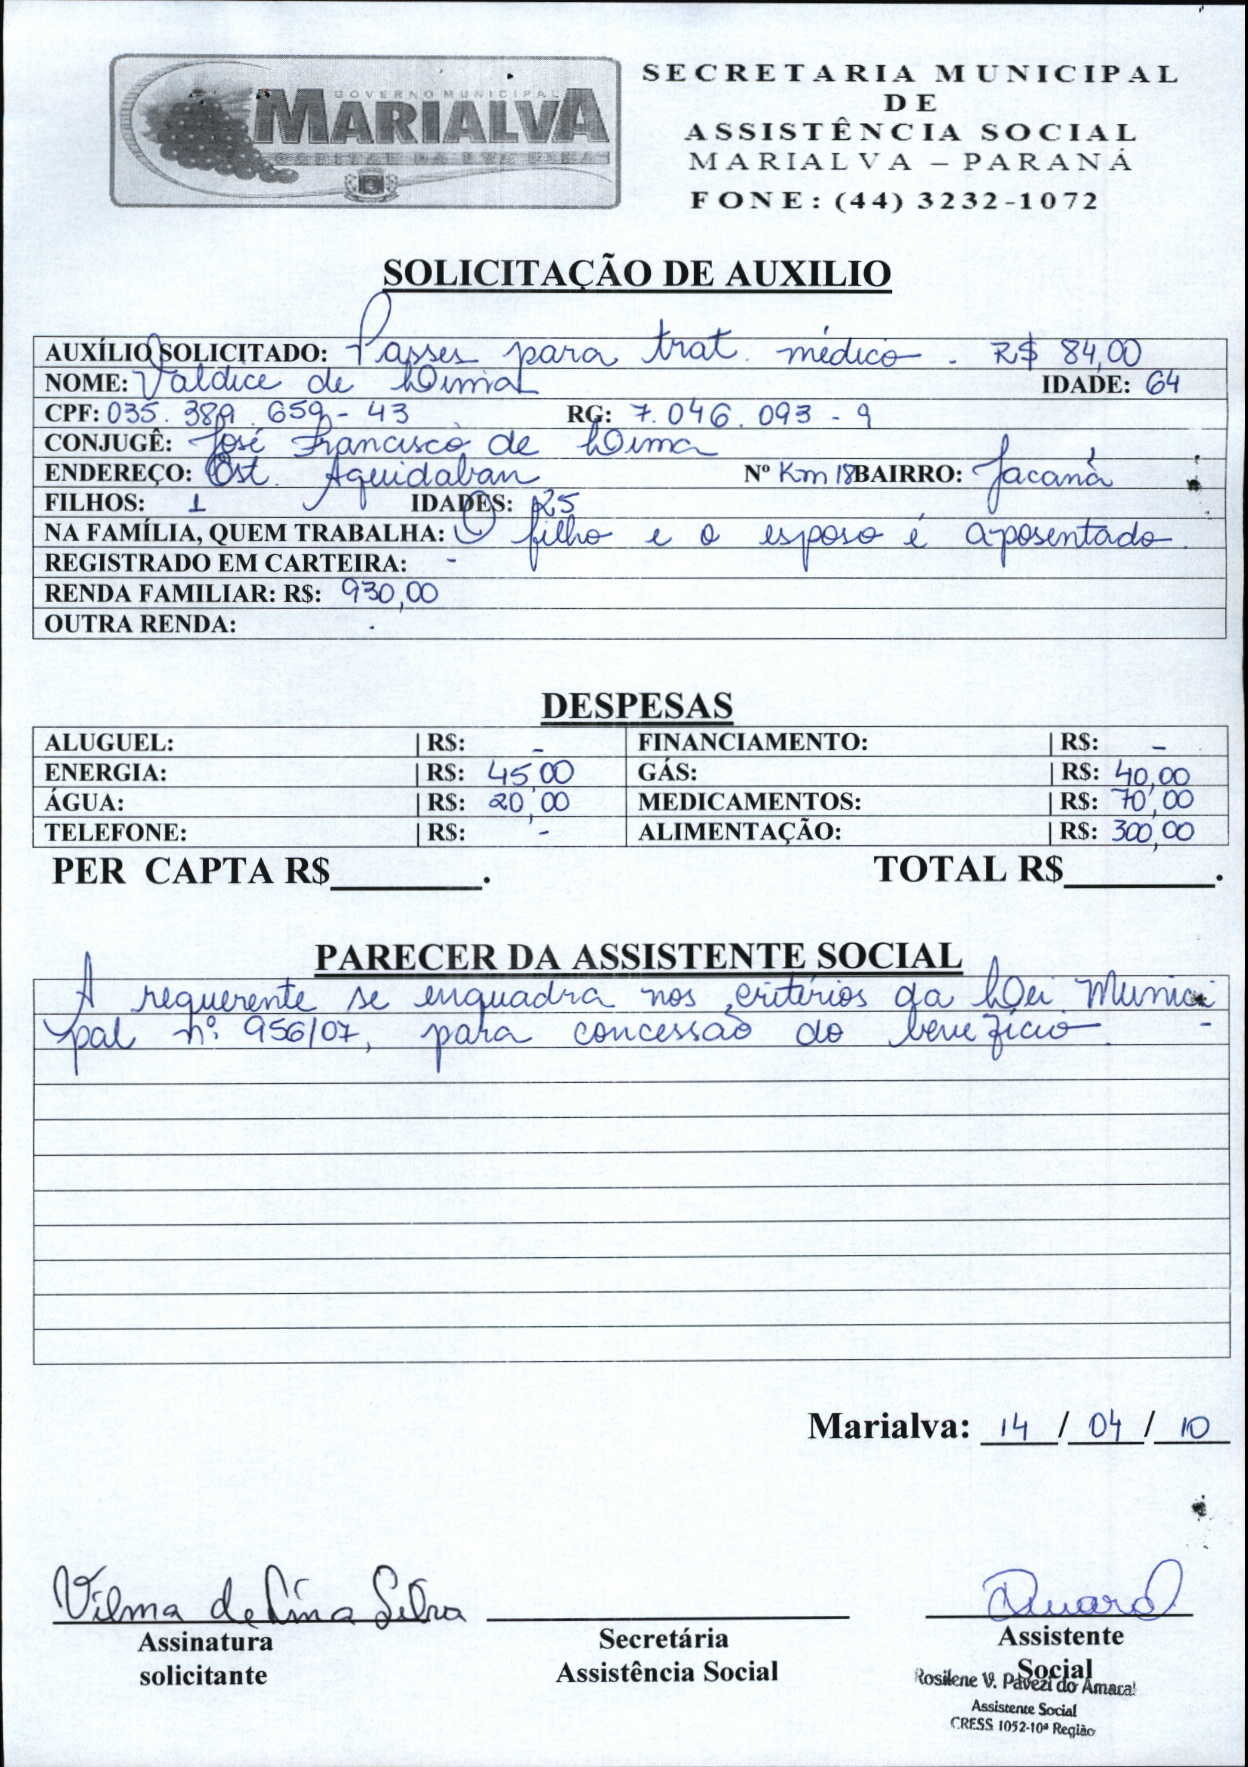 GOVERNO MUNICIPAL
MARIALVA
CAPITAL DA UVA FINA
SECRETARIA MUNICIPAL
DE
ASSISTÊNCIA SOCIAL
MARIALVA – PARANÁ
FONE: (44) 3232-1072
SOLICITAÇÃO DE AUXILIO
AUXÍLIO SOLICITADO: Passes para trat. médico - R$ 84,00
NOME: Valdice de Lima IDADE: 64
CPF: 035.389.659-43 RG: 7.046.093-9
CONJUGÊ: José Francisco de Lima
ENDEREÇO: Est. Aquidaban Nº Km 18 BAIRRO: Jacanã
FILHOS: 1 IDADES: 25
NA FAMÍLIA, QUEM TRABALHA: O filho e o esposo é aposentado.
REGISTRADO EM CARTEIRA: -
RENDA FAMILIAR: R$: 930,00
OUTRA RENDA: -
DESPESAS
ALUGUEL: | R$: - FINANCIAMENTO: | R$: -
ENERGIA: | R$: 45,00 GÁS: | R$: 40,00
ÁGUA: | R$: 20,00 MEDICAMENTOS: | R$: 70,00
TELEFONE: | R$: - ALIMENTAÇÃO: | R$: 300,00
PER CAPTA R$________. TOTAL R$________.
PARECER DA ASSISTENTE SOCIAL
A requerente se enquadra nos critérios da Lei Munici
pal nº. 956/07, para concessão do benefício. -
Marialva: 14 / 04 / 10
Vilma de Lima Silva
Assinatura Secretária Assistente
solicitante Assistência Social Social
Rosilene V. Pavezi do Amaral
Assistente Social
CRESS 1052-10ª Região